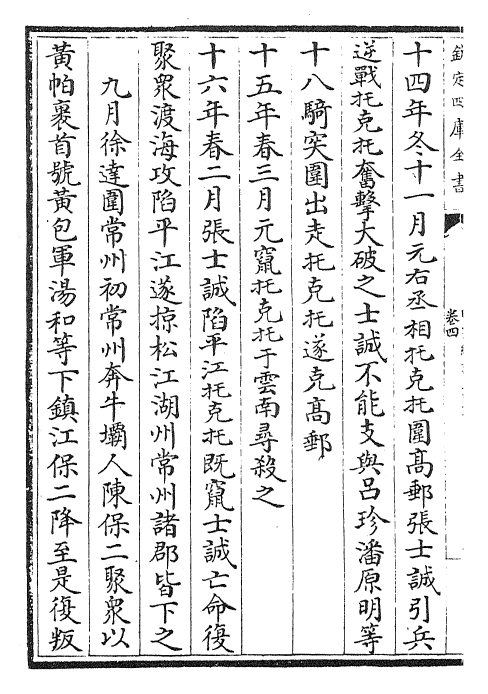 欽定四庫全書
卷四
十四年冬十一月元右丞相托克托圍高郵張士誠引兵
逆戰托克托奮擊大破之士誠不能支與呂珍潘原明等
十八騎突圍出走托克托遂克高郵
十五年春三月元竄托克托于雲南尋殺之
十六年春二月張士誠陷平江托克托既竄士誠亡命復
聚衆渡海攻陷平江遂掠松江湖州常州諸郡皆下之
九月徐達圍常州初常州奔牛壩人陳保二聚衆以
黃帕裹首號黃包軍湯和等下鎮江保二降至是復叛